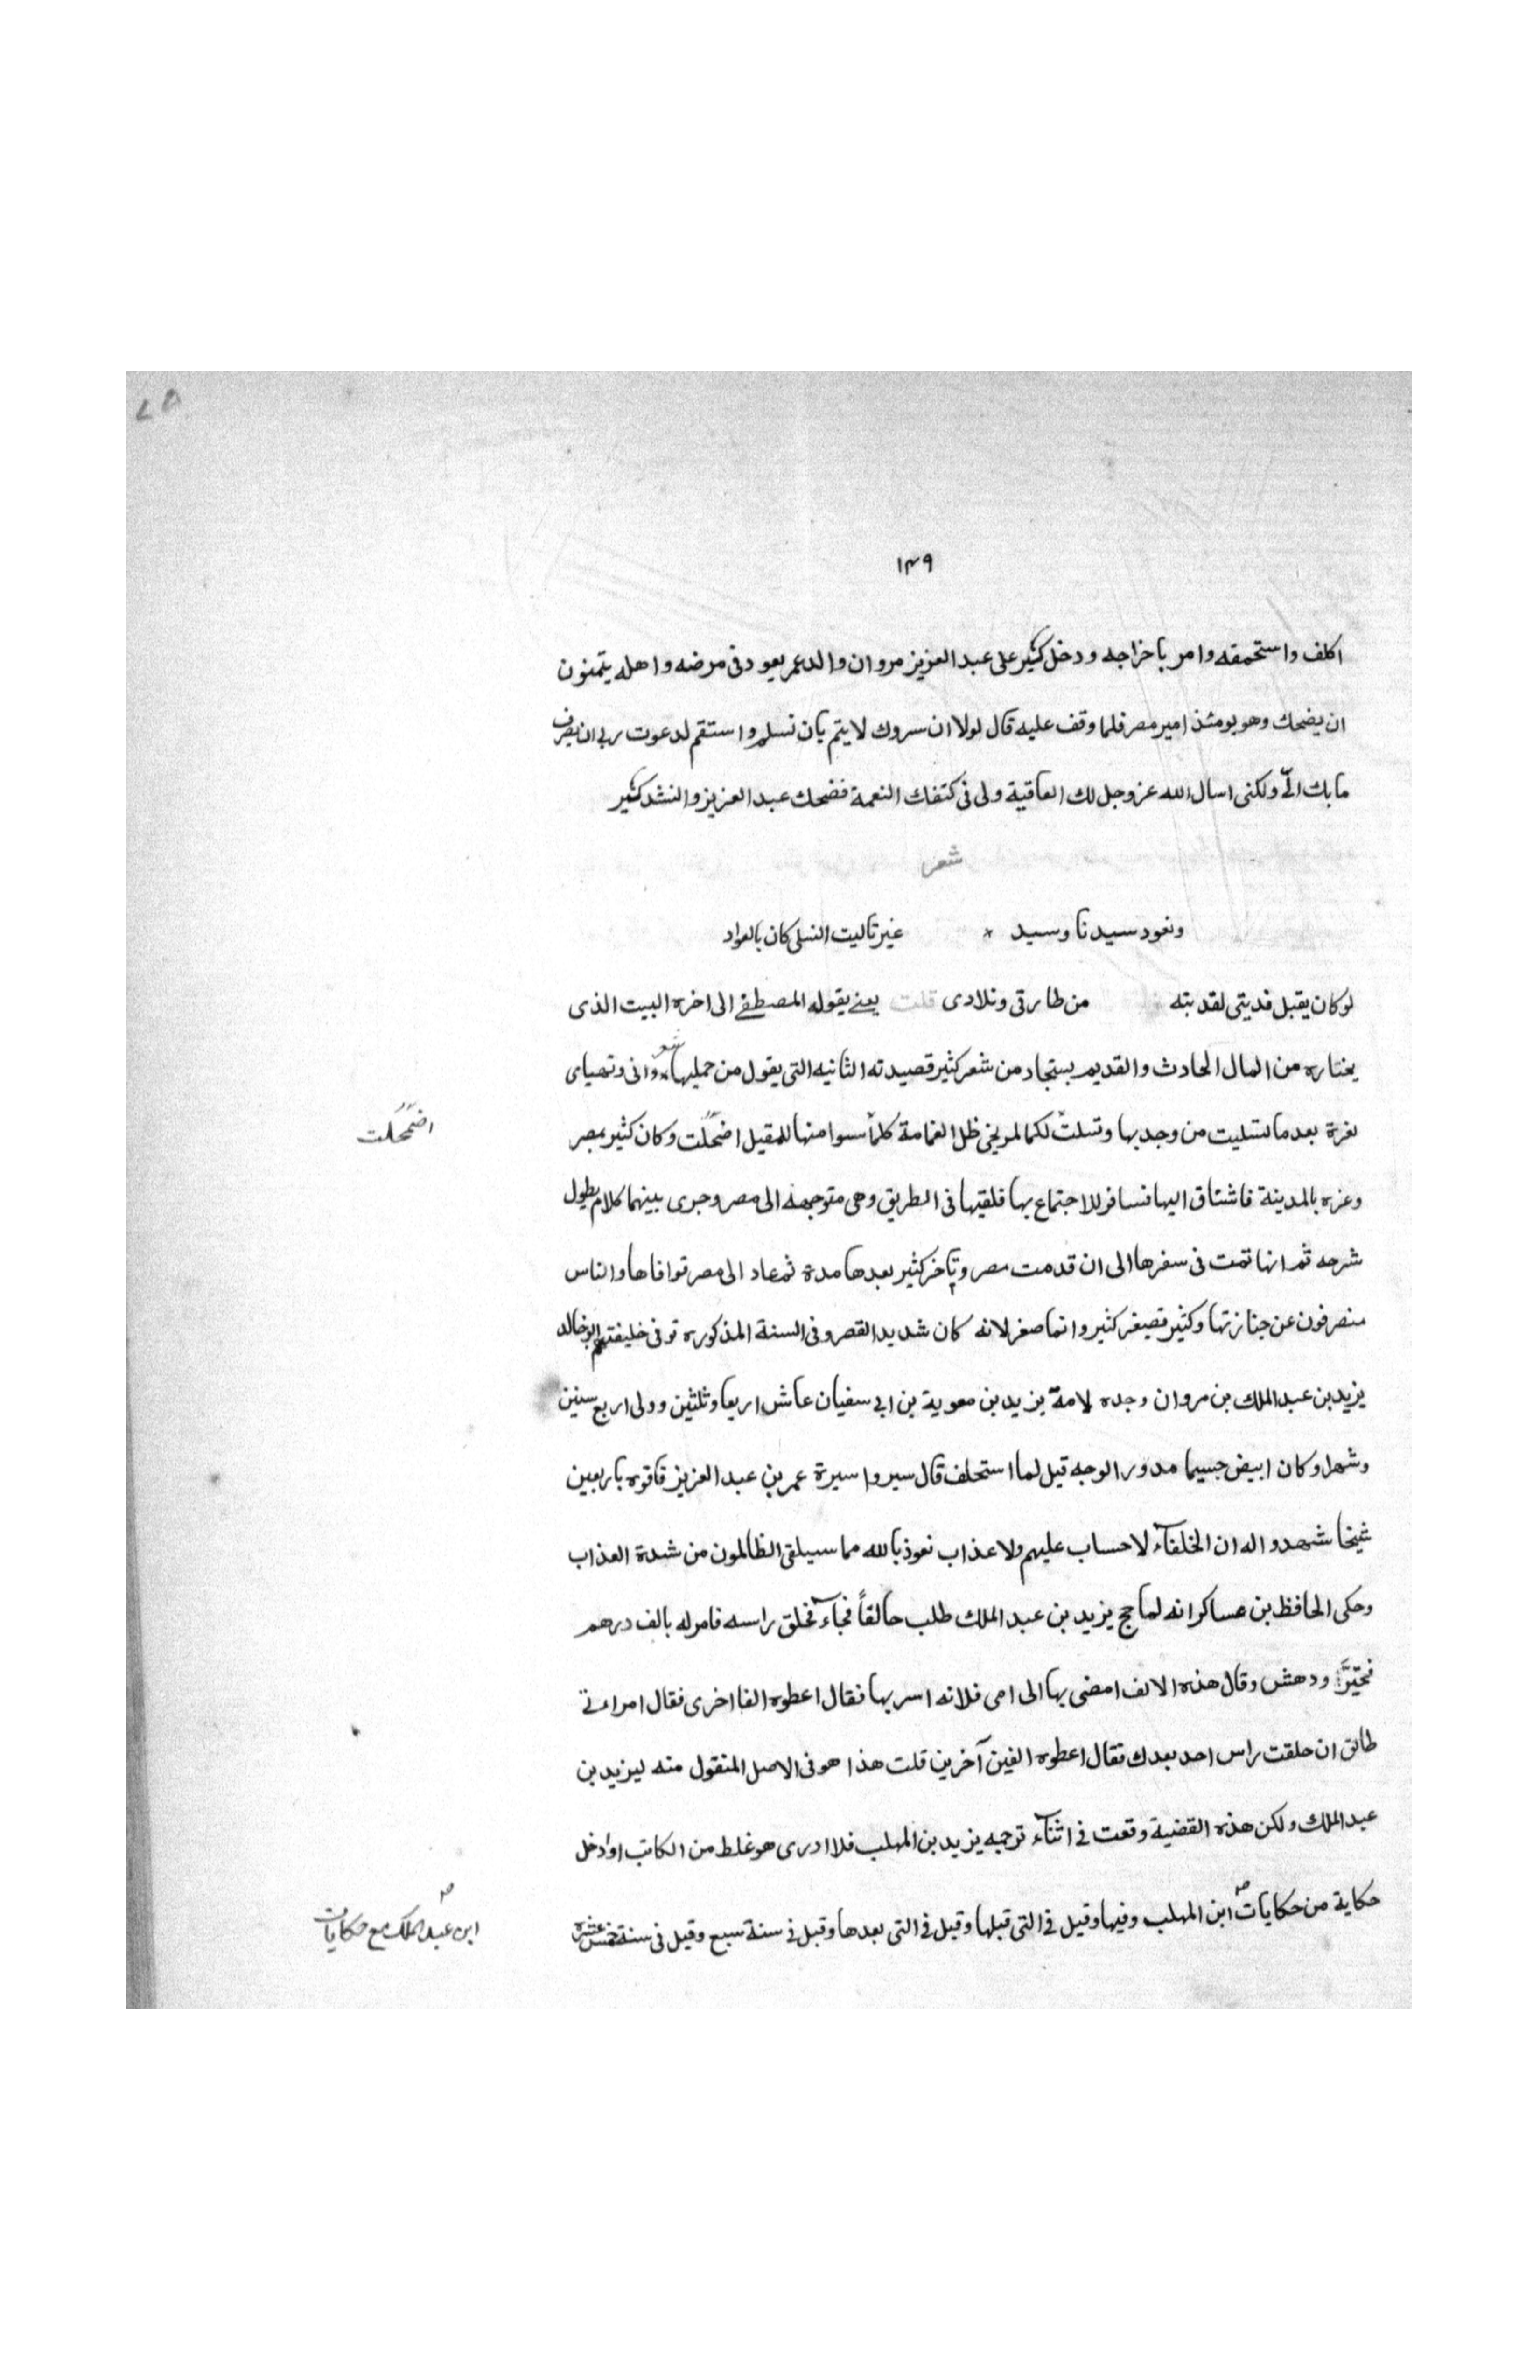 ١٣٩
اكلف واستحمقه وامر باخراجه ودخل كثير على عبد العزيز مروان والد عمر يعود فى مرضه واهله يتمنون
ان يضحك وهو يومئذ امير مصر فلما وقف عليه قال لولا ان سروك لا يتم بان تسلم واستقم لدعوت ربى ان يصرف
ما بك الىّ ولكنى اسال الله عز وجل لك العاقية ولى فى كتفك النعمة فضحك عبد العزيز والنشد كثير
شعر
ونعود سيدنا وسيد * غيرنا ليت النسلى كان بالعواد
لوكان يقبل فديتى لقد بته من طارقى وتلادى قلت يعنے يقوله المصطفے الى اخره البيت الذى
يختاره من المال الحادث والقديم يستجاد من شعر كثير قصيدته الثانيه التى يقول من جمليها شعر وانى وتهياى
لغرة بعد ما تسليت من وجد بها وتسلت لكما لمريخى ظل الغمامة كلما سوا منها للمقيل اضمحلت وكان كثير بمصر
اضمحلت
وعزه بالمدينة فاشتاق اليها فسافر للاجتماع بها فلقيها فى الطريق وهى متوجهة الى مصر وجرى بينهما كلام يطول
شرحه ثم انها تمت فى سفرها الى ان قدمت مصر وتاخر كثير بعدها مدة ثم عاد الى مصر توافاها والناس
منصرفون عن جنازتها وكثير قصيغر كثير وانما صغر لانه كان شديد القصر وفى السنة المذكوره توفى خليفتهم ابو خالد
يزيد بن عبد الملك بن مروان وجده لامة يزيد بن معوية بن ابى سفيان عاش اربعا وثلثين وولى اربع سنين
وشهرا وكان ابيض جسيما مدور الوجه قيل لما استحلف قال سيروا سيرة عمر بن عبد العزيز فاقوه باربعين
شيخا شهدوا له ان الخلفآء لا حساب عليهم ولا عذاب نعوذ بالله مما سيلقى الظالمون من شدة العذاب
وحكى الحافظ بن عساكر انه لما حج يزيد بن عبد الملك طلب حالقاً فجآء فحلق راسه فامر له بالف درهم
فتحيّر ودهش وقال هذه الالف امضى بها الى امى فلانه اسر بها فقال اعطوه الفا اخرى فقال امراءتے
طالق ان حلقت راس احد بعدك فقال اعطوه الفين آخرين قلت هذا هو فى الاصل المنقول منه ليزيد بن
عبد الملك ولكن هذه القضية وقعت فے اثنآء ترجمه يزيد بن المهلب فلا ادرى هو غلط من الكاتب او ادخل
حكاية من حكايات ابن المهلب وفيها وقيل فے التى قبلها وقيل فے التى بعدها وقبل فے سنة سبع وقيل فى سنة خمس عشرة
ابن عبد الملك مع حكايات